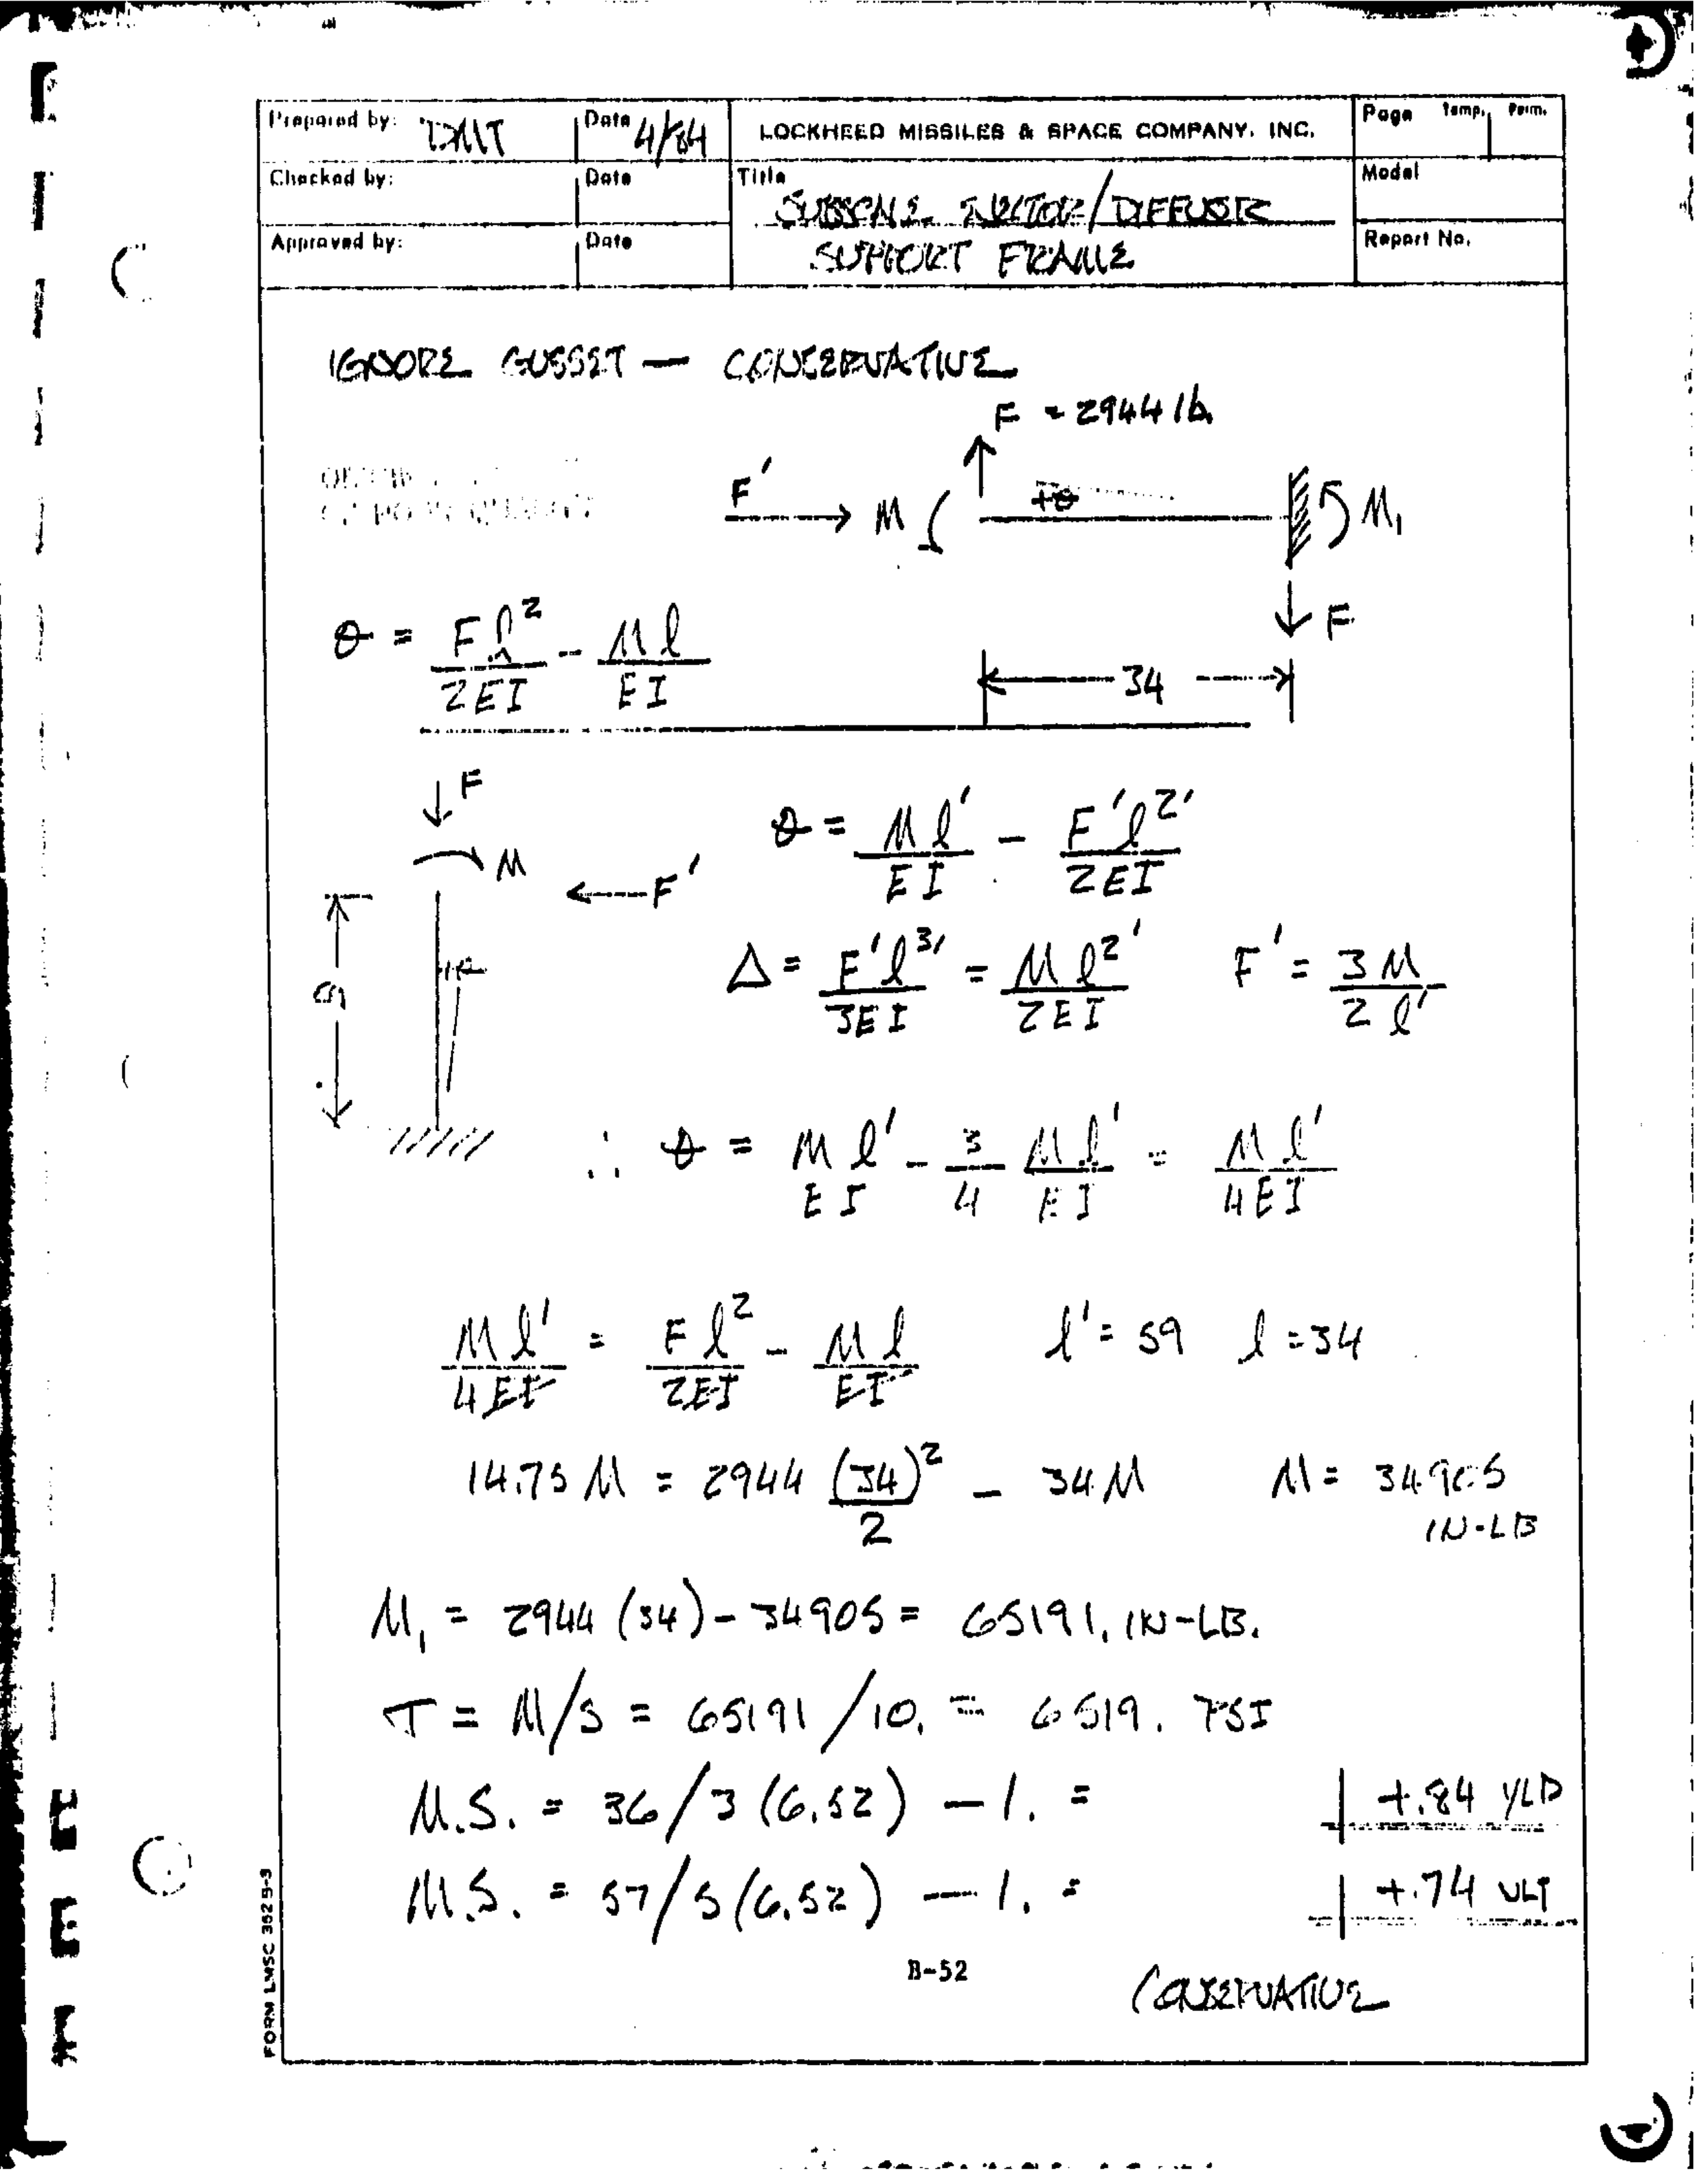 Prepared by: DMT Date 4/84 LOCKHEED MISSILES & SPACE COMPANY, INC. Page Temp. Perm.
Checked by: Date Title Model
SUBSCALE EJECTOR/DIFFUSER
Approved by: Date SUPPORT FRAME Report No.
IGNORE GUSSET — CONSERVATIVE
F = 2944 lb.
F' M +θ M₁
F
θ = Fl²/2EI - Ml/EI
34
F
M
F'
θ = Ml'/EI - F'l²'/2EI
59
Δ = F'l³'/3EI = Ml²'/2EI F' = 3M/2l'
∴ θ = Ml'/EI - 3/4 Ml'/EI = Ml'/4EI
Ml'/4EI = Fl²/2EI - Ml/EI l' = 59 l = 34
14.75 M = 2944 (34)²/2 - 34M M = 34905
IN-LB
M₁ = 2944 (34) - 34905 = 65191. IN-LB.
T = M/S = 65191/10. = 6519. PSI
M.S. = 36/3(6.52) - 1. = +.84 YLD
M.S. = 57/5(6.52) - 1. = +.74 ULT
B-52
CONSERVATIVE
FORM LMSC 3525-3